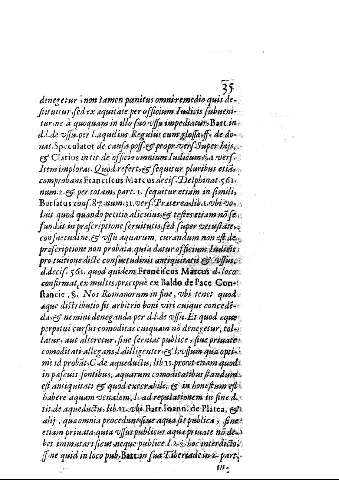 35
denegetur, non tamen panitus omni remedio quis de-
stituitur, sed ex aquitate per officium Iudicis subueni-
tur ne a quoquam in illo suo vsu impediatur. Bart. in
d.l. de vsu. per l. aquilius Regulus cum glossa ff. de do-
nat. Speculator de causa poss. & propr. vers. Super his,
& Clarius in tit. de officio omnium Iudicum §. 2. vers.
Item implorat. Quod refert, & sequitur pluribus etiã
comprobans Franciscus Marcus decis. Delphanat. 561.
num. 2. & per totam, part. 1. sequitur etiam in simili,
Borsatus cons. 87. num. 31. vers. Praterea lib. 1. vbi vo-
luit quod quando petitio alicuius, & testes etiam nõ se
fundãt in prascriptione seruitutis, sed super vetustate,
consuetudine, & vsu aquarum, curandum non est de
prascriptione non probata, quia datur officium Iudicis
pro tutione dicta consuetudinis antiquitatis & vsus,
d. decis. 561. quod quidem Franciscus Marcus d. loco
confirmat, ex multis, pracipue ex Baldo de Pace Con-
stancie, §. Nos Romanorum in fine, vbi tenet quod
aqua distributio fit arbitrio boni viri cuique conced&
da, & nemini deneganda per d.l. de vsu. Et quod aqua
perpetui cursus comoditas cuiquam nõ denegetur, tol-
latur, aut alteretur, sine scientia publice, siue priuate
comoditati allegans, l. diligenter, & l. vsum qua opti-
mè id probãt. C. de aqueductu, lib. 11. prout etiam quod
in pascuis fontibus, aquarum comoditatibus standum
est antiquitati & quod exterabile, & in honestum est
habere aquam venalem, l. ad reputationem in fine d.
tit. de aqueductu, lib. 11. vbi Bart. Ioann. de Platea, &
alij, qua omnia procedunt siue aqua sit publica, siue
etiam priuata quia vsus publicus aqua priuate nõ de-
bet immutari sicut neque publica l. 2. & hoc interdicti
ff. ne quid in loco pub. Bart. in sua Tiberiade in 2. part.
iu-